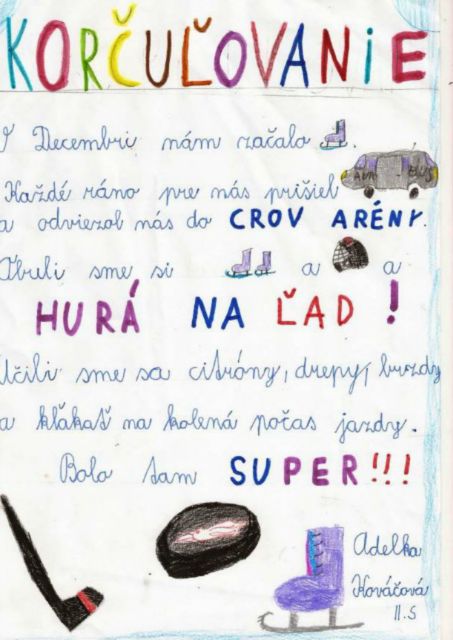 KORČUĽOVANIE
V Decembri nám začalo .
Každé ráno pre nás prišiel AUTO BUS
a odviezol nás do CROW ARÉNY.
Obuli sme si a a
HURÁ NA ĽAD !
Učili sme sa citróny, drepy, brzdy
a kľakať na kolená počas jazdy.
Bolo tam SUPER!!!
Adelka
Kováčová
II.S